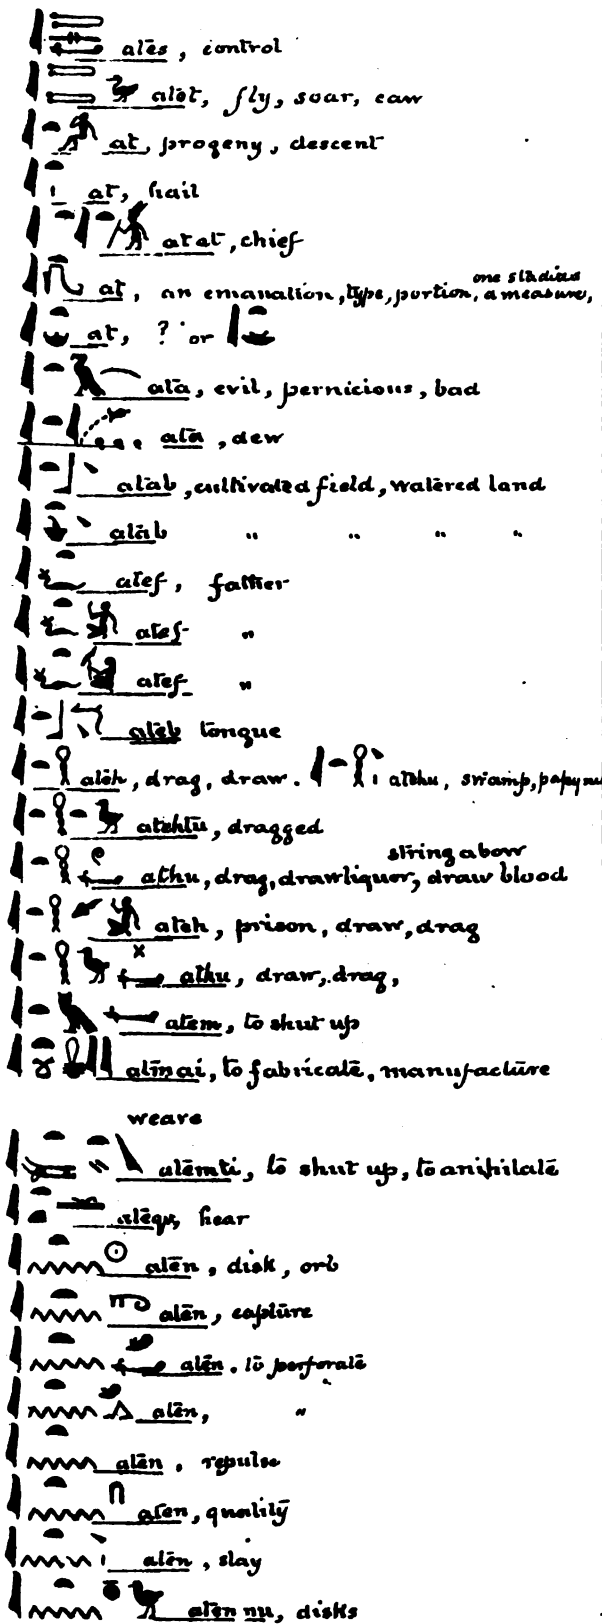 ates, control
atet, fly, soar, caw
at, progeny, descent
at, hail
atat, chief
one stadius
at, an emanation, type, portion, a measure,
at, ? or
ata, evil, pernicious, bad
ata, dew
atab, cultivated field, watered land
atab " " " "
atef, father
atef "
atef "
ateb tongue
ateh, drag, draw. atehu, swamp,
atehtu, dragged
string a bow
athu, drag, draw liquor, draw blood
ateh, prison, draw, drag
athu, draw, drag,
atem, to shut up
atmai, to fabricate, manufacture
weave
atemti, to shut up, to anihilate
hear
aten, disk, orb
aten, capture
aten. to perforate
aten, "
aten, repulse
aten, quality
aten, slay
aten nu, disks